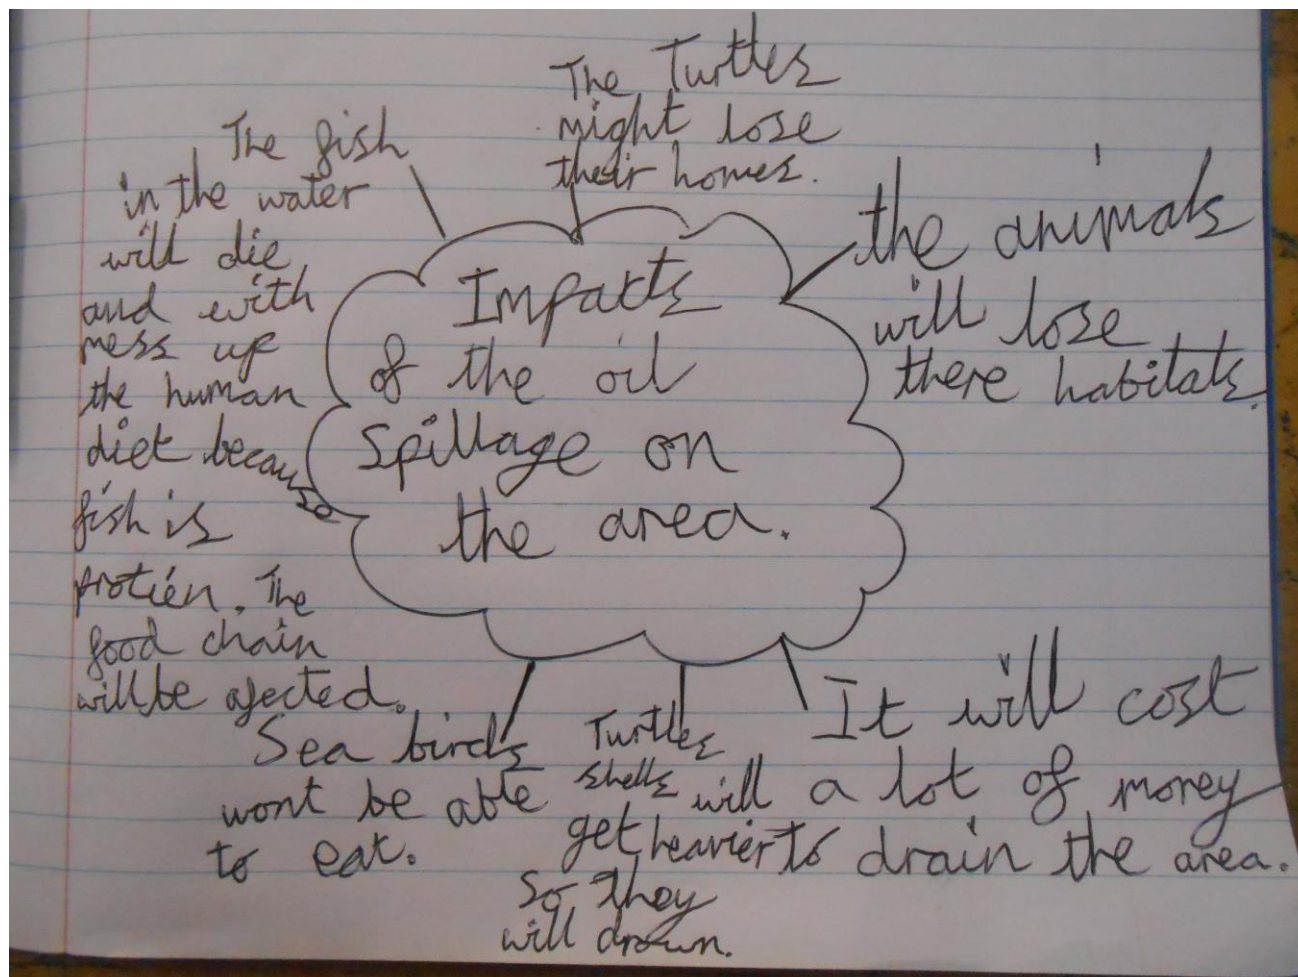 Impacts
of the oil
Spillage on
the area.
The fish
in the water
will die
and with
mess up
the human
diet because
fish is
protién. The
food chain
will be afected.
The Turtles
might lose
their homes.
the animals
will lose
there habitats.
Sea birds
wont be able
to eat.
Turtles
shells will
get heavier
So they
will drown.
It will cost
a lot of money
to drain the area.